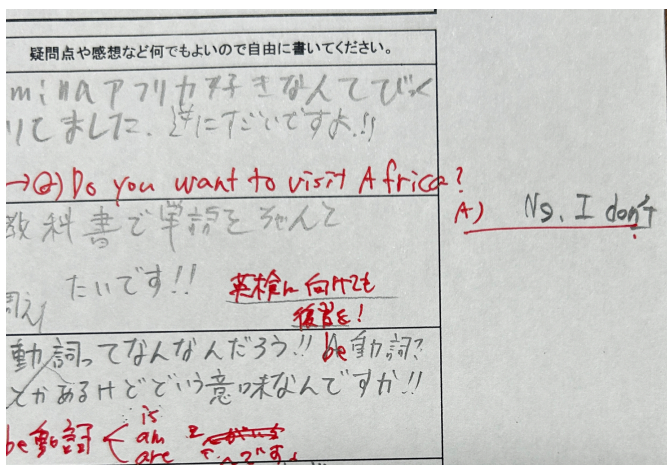 疑問点や感想など何でもよいので自由に書いてください。
minaアフリカ好きなんてびっく
りしました、逆にすごいですよ!!
→Q) Do you want to visit Africa?
A) No, I don't
教科書で単語をちゃんと
たいです!!
英検に向けても
復習を!
動詞ってなんなんだろう!! be動詞?
とかあるけどどういう意味なんですか!!
be動詞 < is
am
are